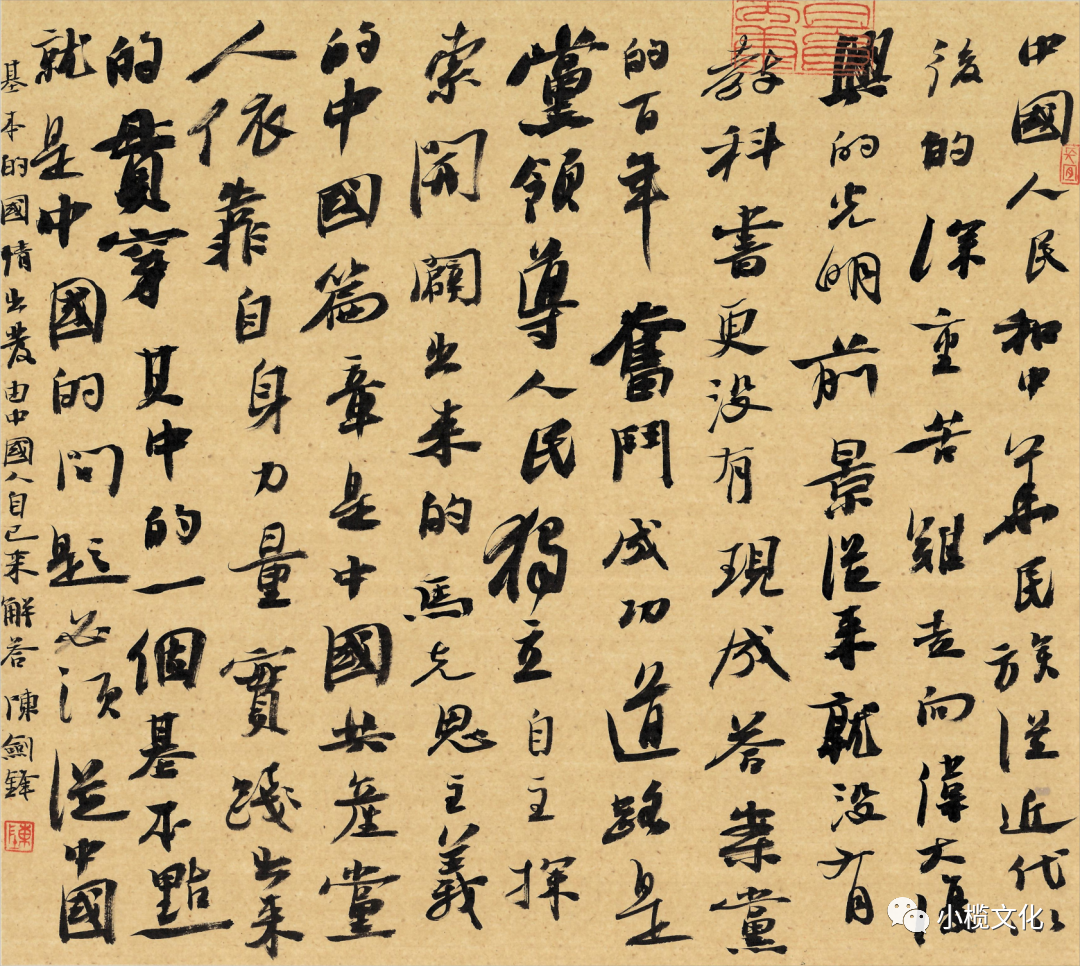 中國人民和中華民族從近代以
後的深重苦難走向偉大復
興的光明前景從來就沒有
教科書更沒有現成答案黨
的百年奮鬥成功道路是
黨領導人民獨立自主探
索開闢出來的馬克思主義
的中國篇章是中國共產黨
人依靠自身力量實踐出來
的貫穿其中的一個基本點
就是中國的問題必須從中國
基本的國情出發由中國人自己來解答 陳劍鋒
小榄文化